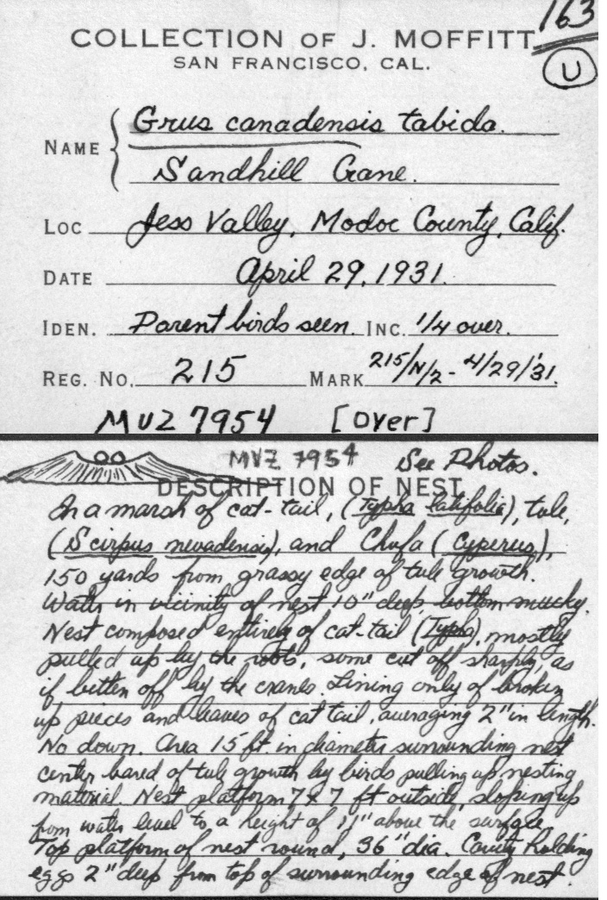 163
U
COLLECTION OF J. MOFFITT
SAN FRANCISCO, CAL.
NAME Grus canadensis tabida.
Sandhill Crane.
LOC Jess Valley, Modoc County, Calif.
DATE April 29, 1931.
IDEN. Parent birds seen. INC. 1/4 over.
REG. NO. 215 MARK 215/N/2 - 4/29/31.
MVZ 7954 [Over]
MVZ 7954 See Photos.
DESCRIPTION OF NEST
In a marsh of cat-tail, (Typha latifolia), tule,
(Scirpus nevadensis), and Chufa (Cyperus),
150 yards from grassy edge of tule growth.
Water in vicinity of nest 10" deep, bottom mucky.
Nest composed entirely of cat-tail (Typha), mostly
pulled up by the roots, some cut off sharply, as
if bitten off by the cranes. Lining only of broken
up pieces and leaves of cat tail, averaging 2" in length.
No down. Area 15 ft. in diameter surrounding nest
center bared of tule growth by birds pulling up nesting
material. Nest platform 7 x 7 ft outside, sloping up
from water level to a height of 11" above the surface.
Top platform of nest round, 36" dia. Cavity holding
eggs 2" deep from top of surrounding edge of nest.